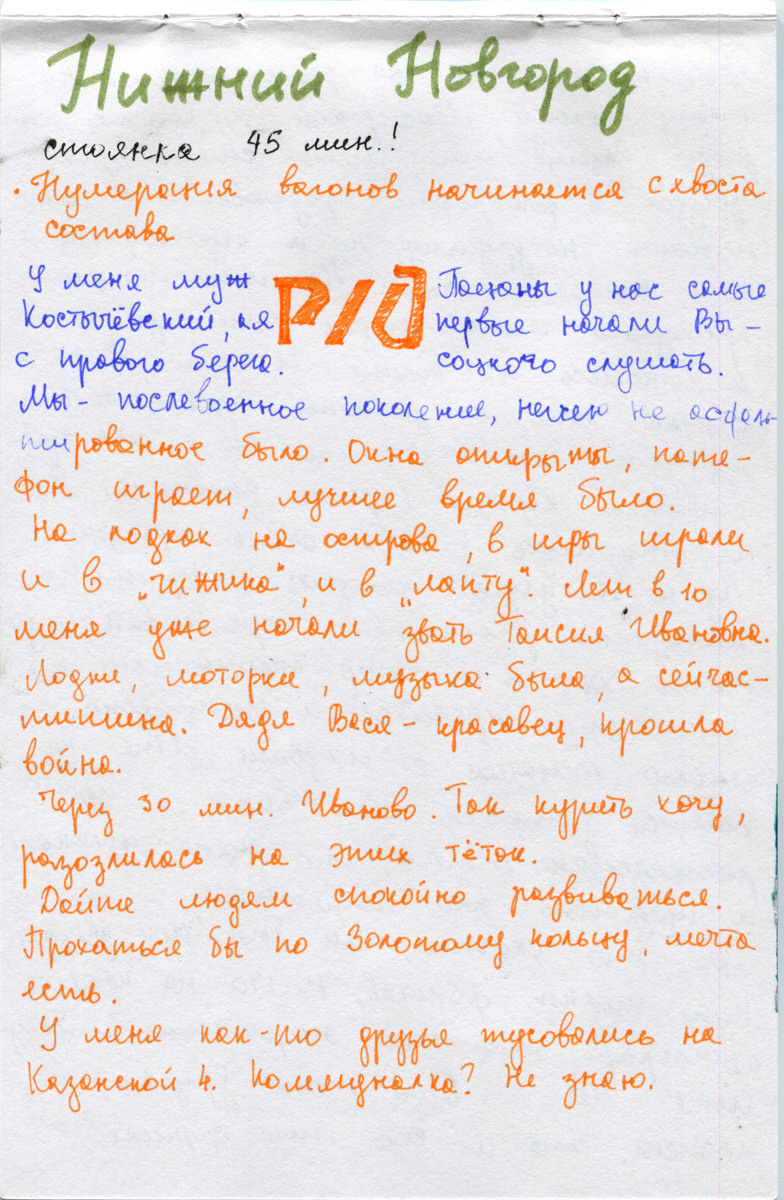 Нижний Новгород
стоянка 45 мин.!
. Нумерация вагонов начинается с хвоста
состава
У меня муж
Костычёвский, а я
с правого берега.
Р/О
Пацаны у нас самые
первые начали Вы-
соцкого слушать.
Мы - послевоенное поколение, ничего не асфаль-
тированное было. Окна открыты, пате-
фон играет, лучшее время было.
На лодках на острова, в игры играли
и в „чижика“, и в „лапту“ Лет в 10
меня уже начали звать Таисия Ивановна.
Лодки, моторки, музыка была, а сейчас-
тишина. Дядя Вася - красавец, прошла
война.
Через 30 мин. Иваново. Так курить хочу,
разозлилась на этих тёток.
Дайте людям спокойно развиваться.
Прохаться бы по Золотому кольцу, мечта
есть.
У меня как-то друзья тусовались на
Казанской 4. Коммуналка? Не знаю.